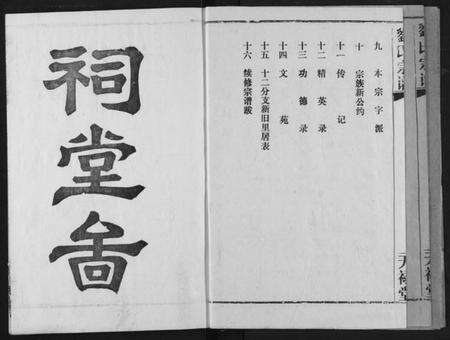 九 本宗字派
十 宗族新公约
十一 传记
十二 精英录
十三 功德录
十四 文苑
十五 十二分支新旧里居表
十六 续修宗谱跋
祠堂啚